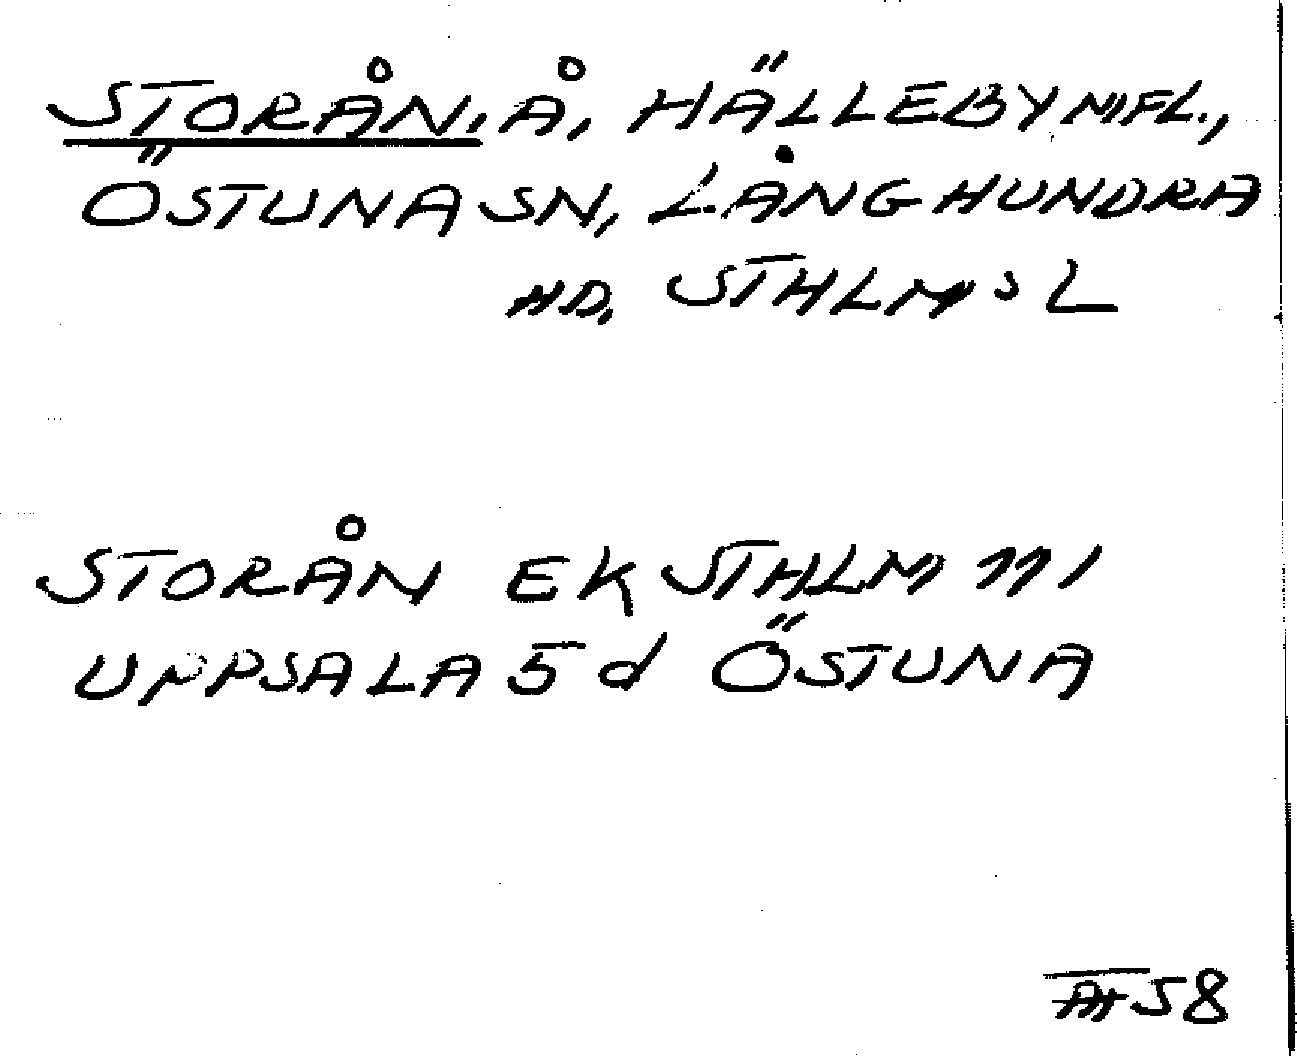 STORÅN, Å, HÄLLEBY MFL.,
ÖSTUNA SN, LÅNGHUNDRA
HD, STHLMS L
STORÅN EK STHLM 111
UPPSALA 5 d ÖSTUNA
58